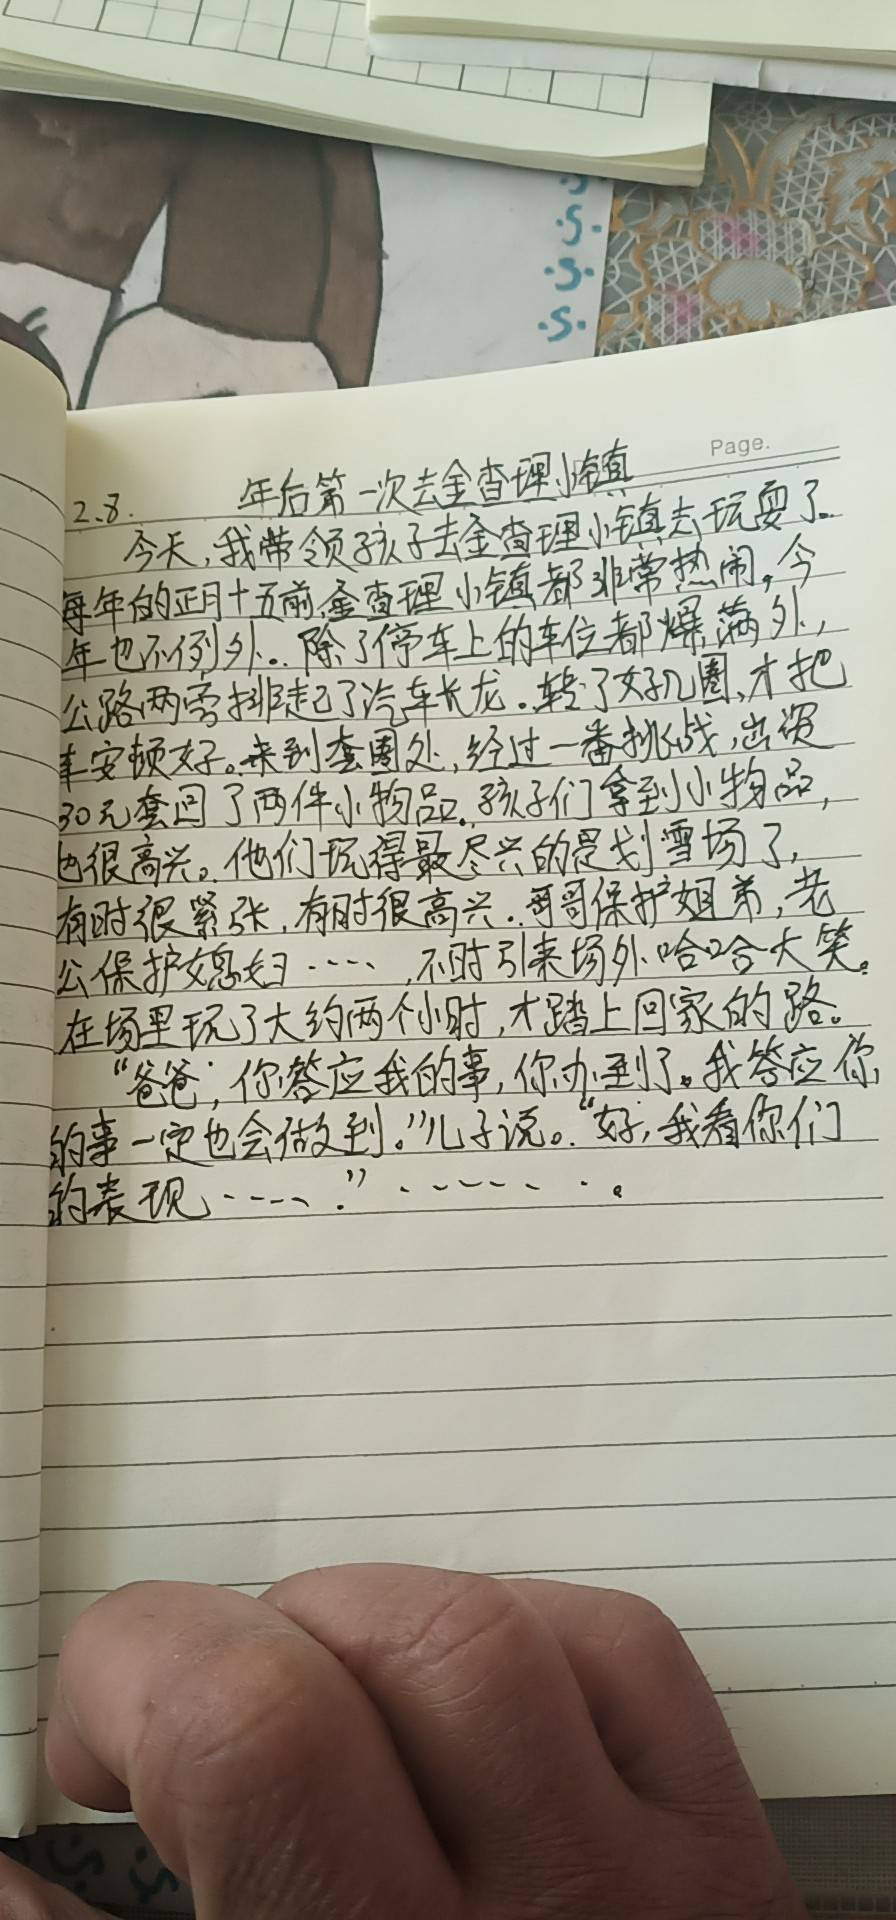 ·S·
·S·
·S·
·S·
Page.
2.8. 年后第一次去金查理小镇
今天,我带领孩子去金查理小镇去玩耍了。
每年的正月十五前,金查理小镇都非常热闹。今
年也不例外。除了停车上的车位都爆满外,
公路两旁排起了汽车长龙。转了好几圈,才把
车安顿好。来到套圈处,经过一番挑战,出资
30元套回了两件小物品。孩子们拿到小物品,
也很高兴。他们玩得最尽兴的是划雪场了,
有时很紧张,有时很高兴。哥哥保护姐弟,老
公保护媳妇……,不时引来场外哈哈大笑。
在场里玩了大约两个小时,才踏上回家的路。
“爸爸,你答应我的事,你办到了。我答应你
的事一定也会做到。”儿子说。“好,我看你们
的表现……。”……。